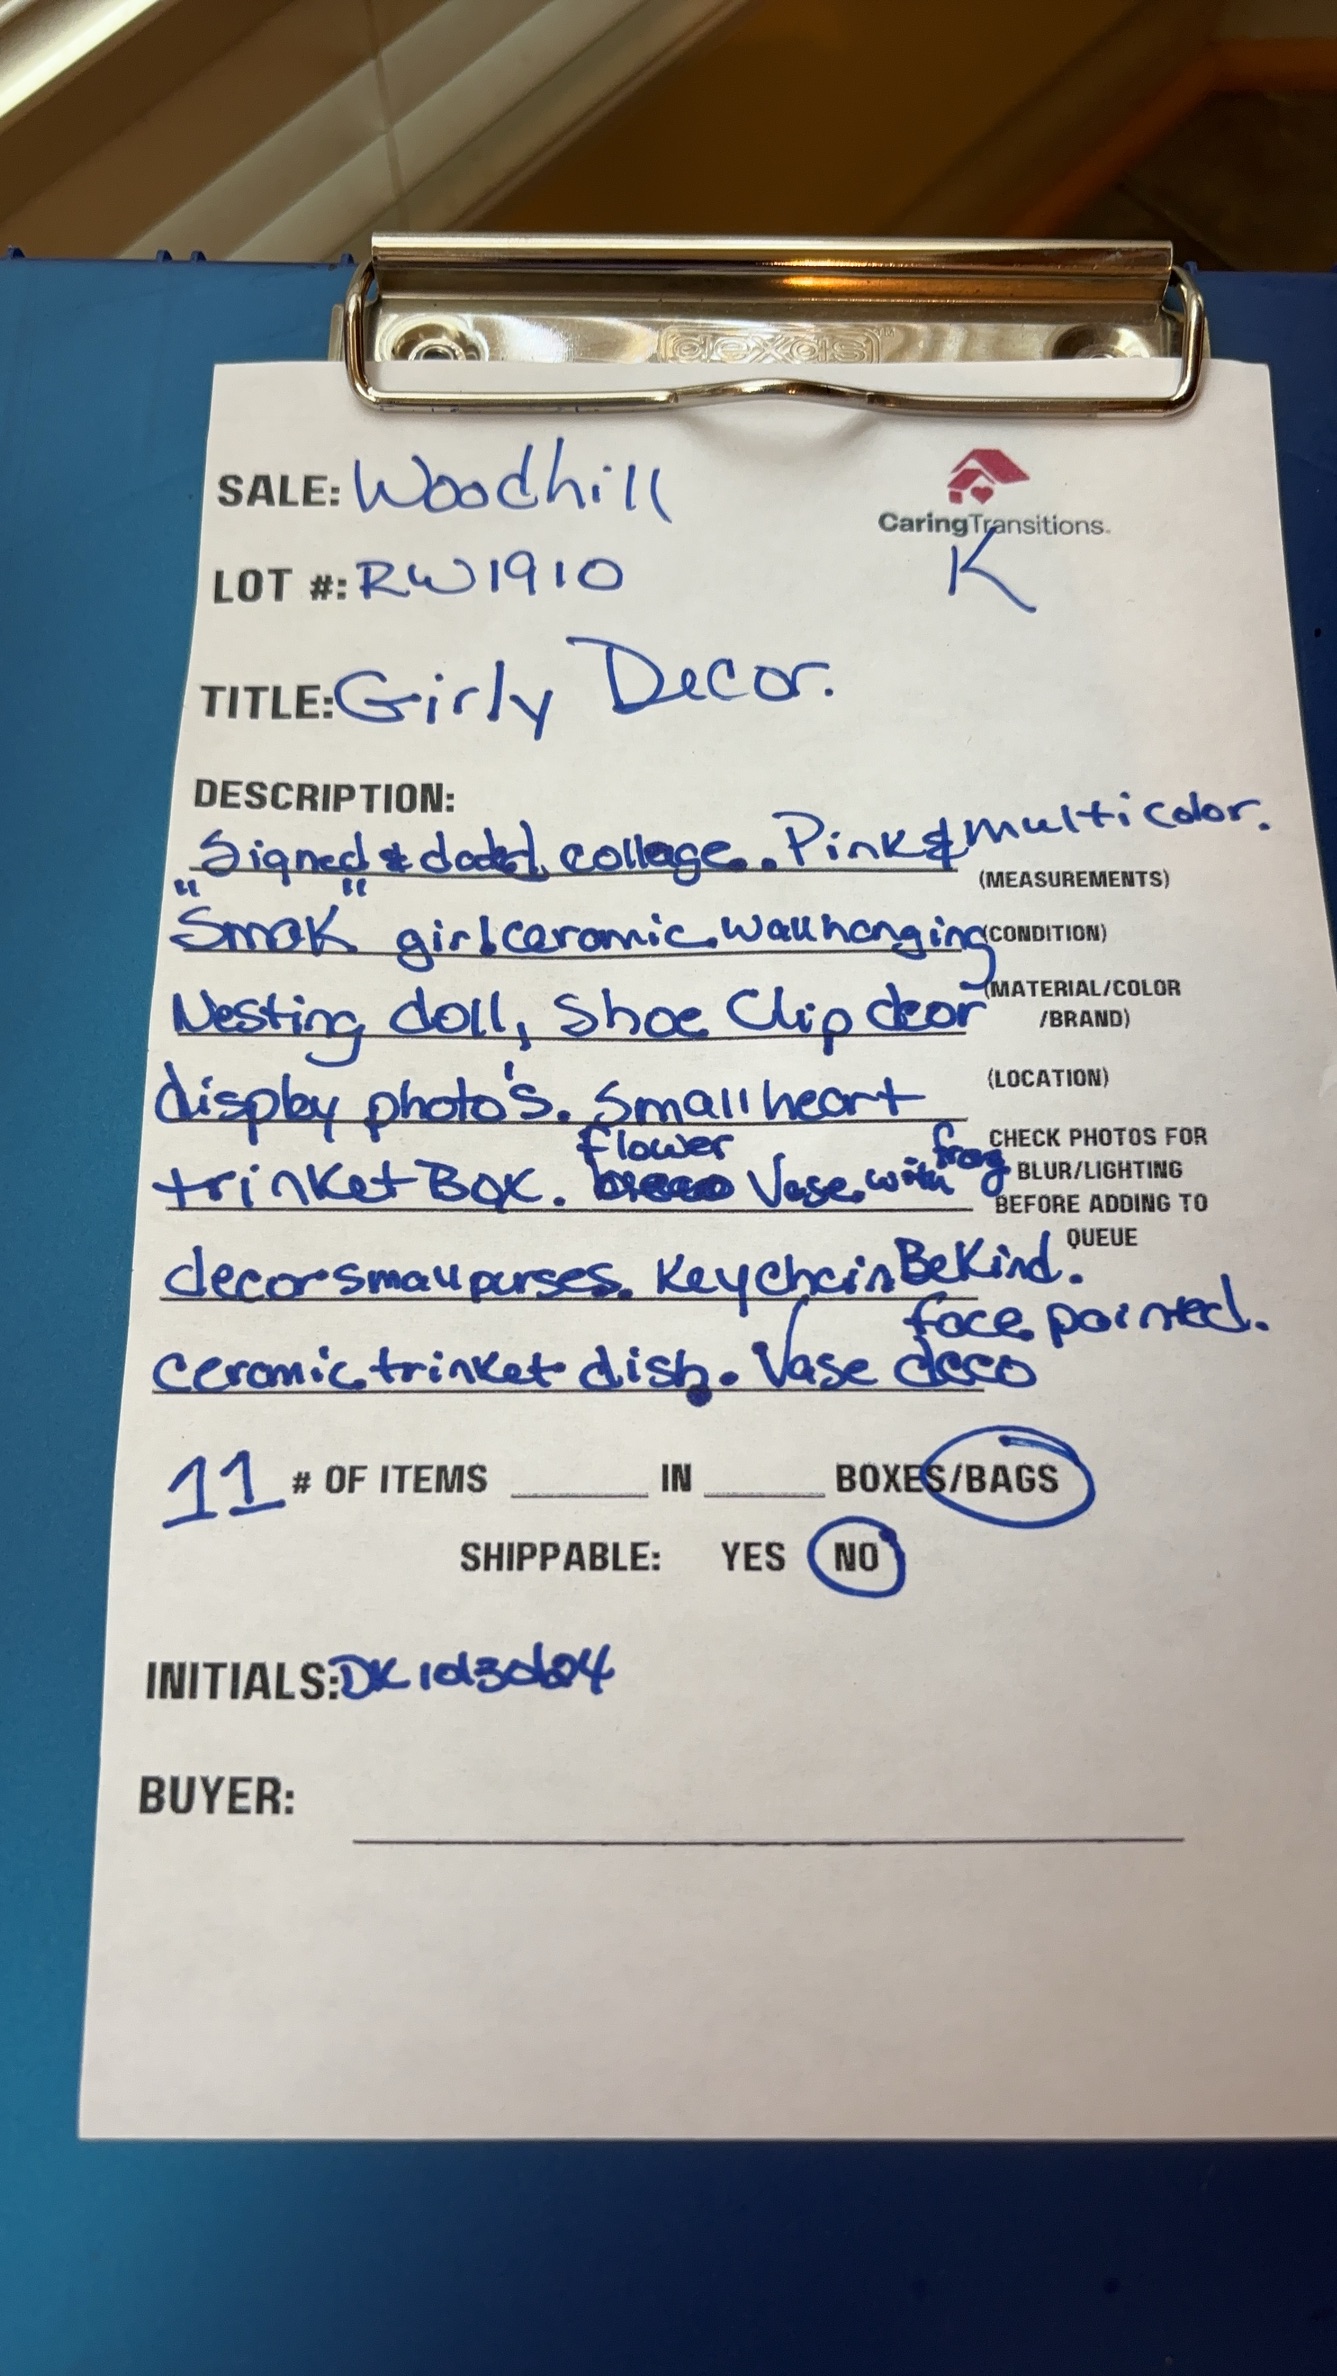 alexais™
SALE: Woodhill
CaringTransitions.
LOT #: RW1910
K
TITLE: Girly Decor.
DESCRIPTION:
Signed & dated collage. Pink & multicolor.
(MEASUREMENTS)
"Smak" girl ceramic wall hanging
(CONDITION)
Nesting doll, Shoe Clip decor
(MATERIAL/COLOR
/BRAND)
display photo's. Small heart
(LOCATION)
trinket Box. flower Vase with frog
CHECK PHOTOS FOR
BLUR/LIGHTING
BEFORE ADDING TO
QUEUE
decor small purses. Keychain BeKind.
ceramic trinket dish. Vase deco face painted.
11 # OF ITEMS IN BOXES/BAGS
SHIPPABLE: YES NO
INITIALS: DK
BUYER: